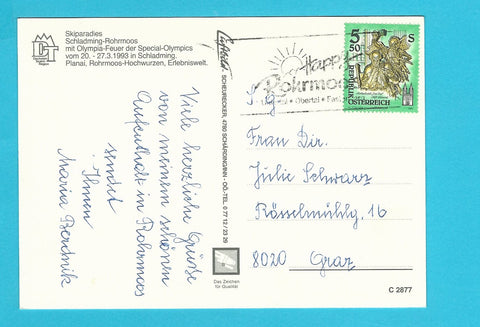 Skiparadies
Schladming-Rohrmoos
mit Olympia-Feuer der Special-Olympics
vom 20. - 27.3.1993 in Schladming.
Planai, Rohrmoos-Hochwurzen, Erlebniswelt.
Viele herzliche Grüße
von meinem schönen
Aufenthalt in Rohrmoos
sendet
Ihnen
Maria
SCHEURECKER, 4780 SCHÄRDING/INN - OÖ-TEL. 0 77 12 / 23 29
Das Zeichen
für Qualität
Happy
Rohrmoos
Obertal
5 50
S
REPUBLIK
ÖSTERREICH
S. g.
Frau Dir.
Julie Schwarz
Rösselmühlg. 16
8020 Graz
C 2877